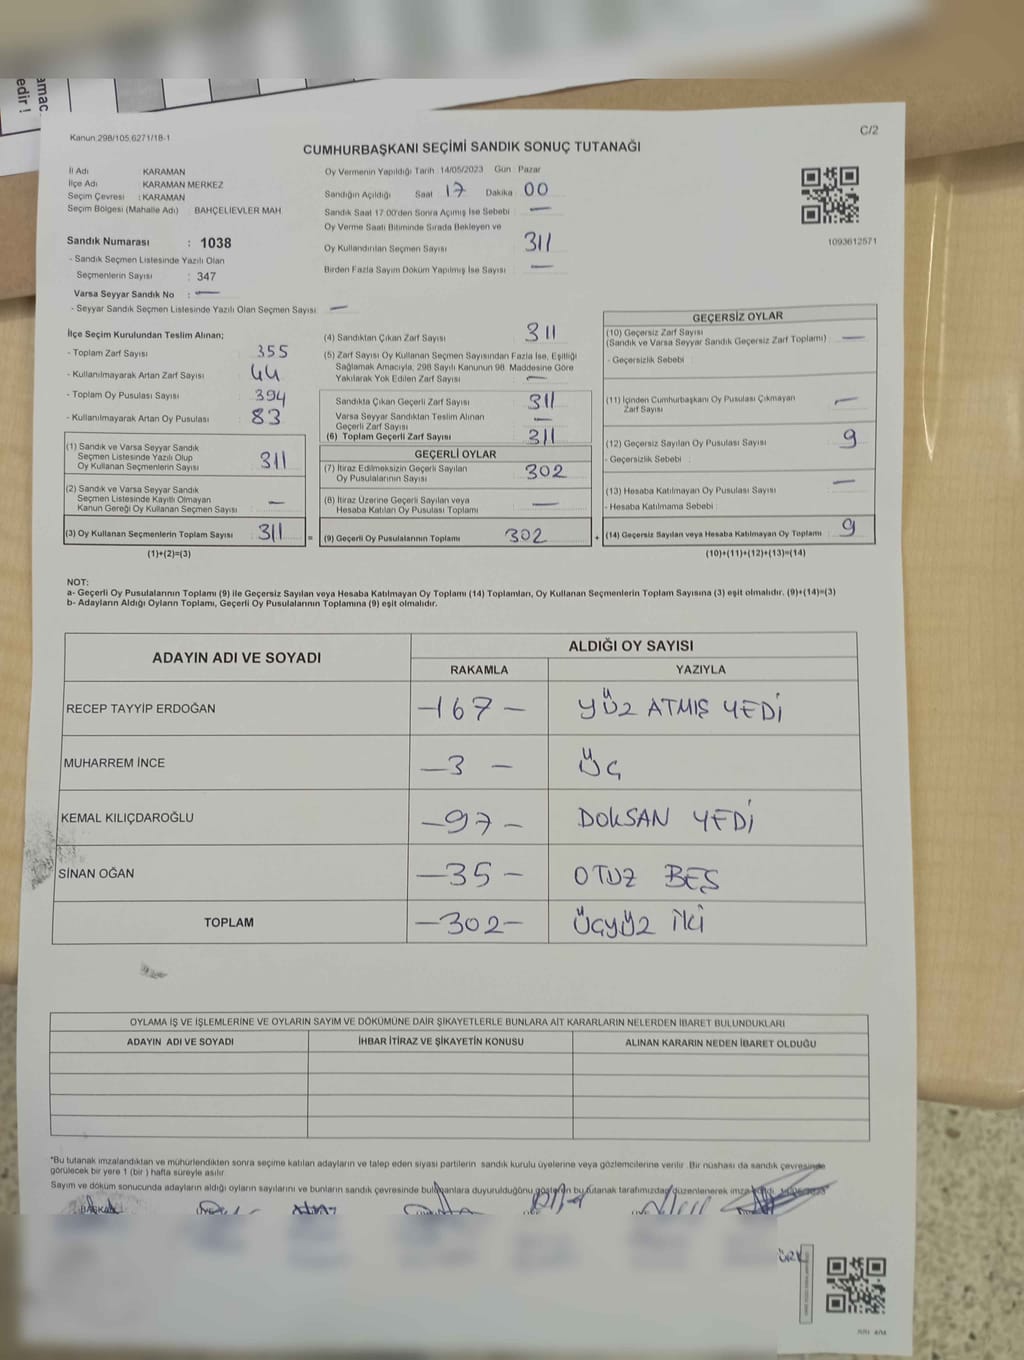 amac
edir !
Kanun:298/105.6271/18-1
C/2
CUMHURBAŞKANI SEÇİMİ SANDIK SONUÇ TUTANAĞI
İl Adı KARAMAN
İlçe Adı KARAMAN MERKEZ
Seçim Çevresi : KARAMAN
Seçim Bölgesi (Mahalle Adı) : BAHÇELİEVLER MAH
Sandık Numarası : 1038
- Sandık Seçmen Listesinde Yazılı Olan
Seçmenlerin Sayısı : 347
Varsa Seyyar Sandık No : —
- Seyyar Sandık Seçmen Listesinde Yazılı Olan Seçmen Sayısı —
Oy Vermenin Yapıldığı Tarih :14/05/2023 Gün : Pazar
Sandığın Açıldığı Saat 17 Dakika 00
Sandık Saat 17:00'den Sonra Açımış İse Sebebi : —
Oy Verme Saati Bitiminde Sırada Bekleyen ve
Oy Kullandırılan Seçmen Sayısı 311
Birden Fazla Sayım Döküm Yapılmış İse Sayısı : —
1093612571
İlçe Seçim Kurulundan Teslim Alınan;
- Toplam Zarf Sayısı 355
- Kullanılmayarak Artan Zarf Sayısı : 44
- Toplam Oy Pusulası Sayısı 394
- Kullanılmayarak Artan Oy Pusulası : 83
(1) Sandık ve Varsa Seyyar Sandık
Seçmen Listesinde Yazılı Olup
Oy Kullanan Seçmenlerin Sayısı 311
(2) Sandık ve Varsa Seyyar Sandık
Seçmen Listesinde Kayıtlı Olmayan
Kanun Gereği Oy Kullanan Seçmen Sayısı —
(3) Oy Kullanan Seçmenlerin Toplam Sayısı 311 =
(1)+(2)=(3)
(4) Sandıktan Çıkan Zarf Sayısı 311
(5) Zarf Sayısı Oy Kullanan Seçmen Sayısından Fazla İse, Eşitliği
Sağlamak Amacıyla, 298 Sayılı Kanunun 98. Maddesine Göre
Yakılarak Yok Edilen Zarf Sayısı —
Sandıkta Çıkan Geçerli Zarf Sayısı 311
Varsa Seyyar Sandıktan Teslim Alınan
Geçerli Zarf Sayısı —
(6) Toplam Geçerli Zarf Sayısı 311
GEÇERLİ OYLAR
(7) İtiraz Edilmeksizin Geçerli Sayılan
Oy Pusulalarının Sayısı 302
(8) İtiraz Üzerine Geçerli Sayılan veya
Hesaba Katılan Oy Pusulası Toplamı —
(9) Geçerli Oy Pusulalarının Toplamı 302 +
GEÇERSİZ OYLAR
(10) Geçersiz Zarf Sayısı
(Sandık ve Varsa Seyyar Sandık Geçersiz Zarf Toplamı) —
- Geçersizlik Sebebi :
(11) İçinden Cumhurbaşkanı Oy Pusulası Çıkmayan
Zarf Sayısı —
(12) Geçersiz Sayılan Oy Pusulası Sayısı 9
- Geçersizlik Sebebi :
(13) Hesaba Katılmayan Oy Pusulası Sayısı —
- Hesaba Katılmama Sebebi :
(14) Geçersiz Sayılan veya Hesaba Katılmayan Oy Toplamı 9
(10)+(11)+(12)+(13)=(14)
NOT:
a- Geçerli Oy Pusulalarının Toplamı (9) ile Geçersiz Sayılan veya Hesaba Katılmayan Oy Toplamı (14) Toplamları, Oy Kullanan Seçmenlerin Toplam Sayısına (3) eşit olmalıdır. (9)+(14)=(3)
b- Adayların Aldığı Oyların Toplamı, Geçerli Oy Pusulalarının Toplamına (9) eşit olmalıdır.
ADAYIN ADI VE SOYADI
ALDIĞI OY SAYISI
RAKAMLA YAZIYLA
RECEP TAYYİP ERDOĞAN —167— YÜZ ATMIŞ YEDİ
MUHARREM İNCE —3— ÜÇ
KEMAL KILIÇDAROĞLU —97— DOKSAN YEDİ
SİNAN OĞAN —35— OTUZ BEŞ
TOPLAM —302— ÜÇYÜZ İKİ
OYLAMA İŞ VE İŞLEMLERİNE VE OYLARIN SAYIM VE DÖKÜMÜNE DAİR ŞİKAYETLERLE BUNLARA AİT KARARLARIN NELERDEN İBARET BULUNDUKLARI
ADAYIN ADI VE SOYADI İHBAR İTİRAZ VE ŞİKAYETİN KONUSU ALINAN KARARIN NEDEN İBARET OLDUĞU
*Bu tutanak imzalandıktan ve mühürlendikten sonra seçime katılan adayların ve talep eden siyasi partilerin sandık kurulu üyelerine veya gözlemcilerine verilir .Bir nüshası da sandık çevresinde
görülecek bir yere 1 (bir ) hafta süreyle asılır.
Sayım ve döküm sonucunda adayların aldığı oyların sayılarını ve bunların sandık çevresinde bulunanlara duyurulduğunu gösteren bu tutanak tarafımızdan düzenlenerek
BAŞKAN